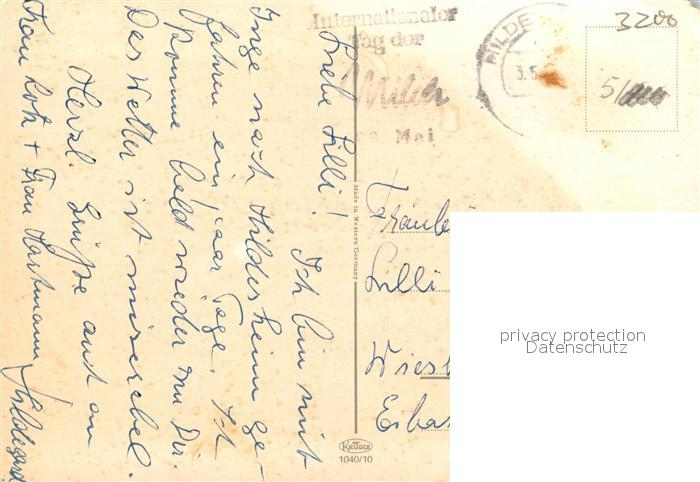 Liebe Lilli!
Ich bin mit
Inge nach Hildesheim ge-
fahren ein paar Tage. Ich
komme bald wieder zu Dir.
Das Wetter ist miserabel.
Herzl. Grüße auch an
Frau Roth + Frau Hartmann
Hildegard
Internationaler
Tag der
Milch
Mai
HILDE
3.5
3200
51
Made in Western Germany
Fräule
Lilli
Wiesb
Eibas
KRÜGER
1040/10
privacy protection
Datenschutz